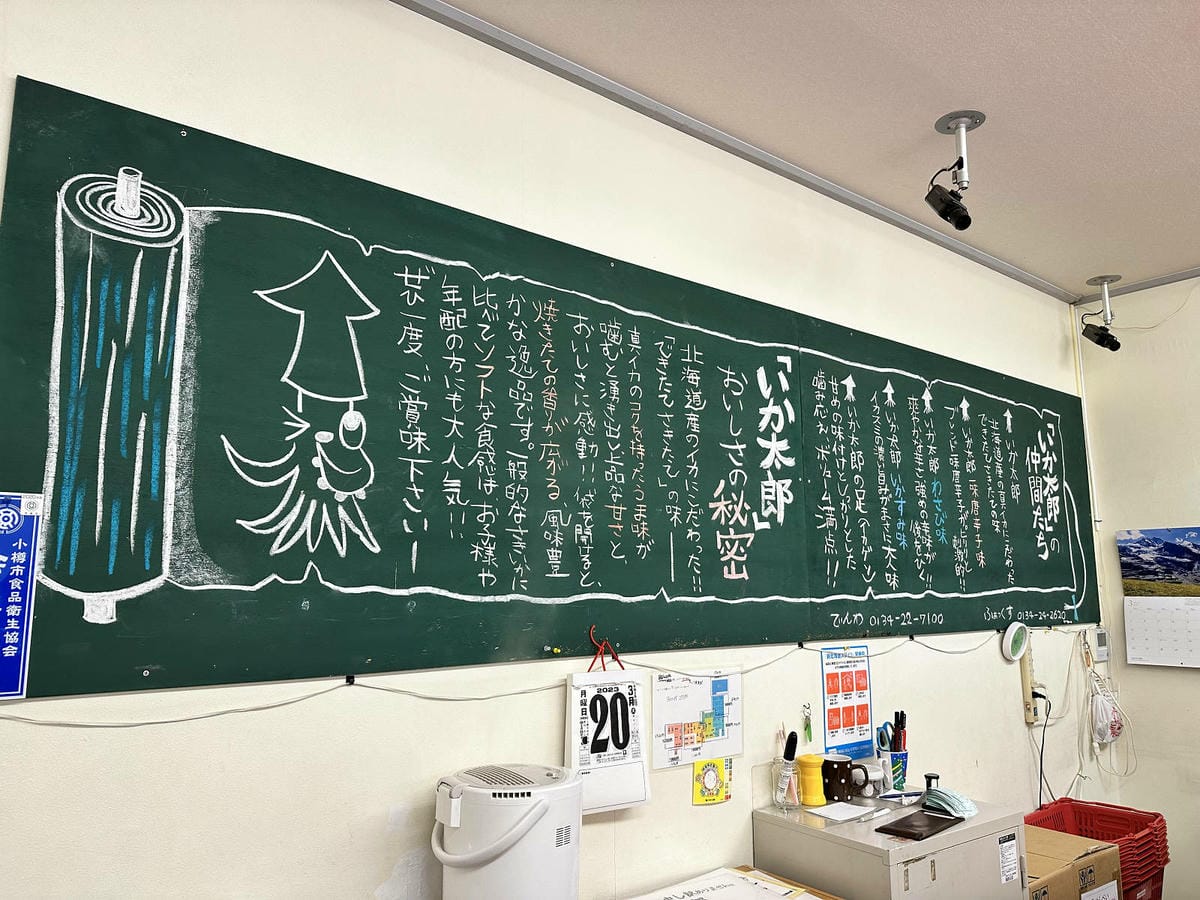 「いか太郎」の
仲間たち
いか太郎
北海道産の真イカにこだわった
できたてさきたての味
いか太郎 一味唐辛子味
いか太郎 わさび味
爽やかな辛さ
いか太郎 いかすみ味
イカスミの濃い旨みが
いか太郎の足(イカゲソ)
甘めの味付けとしっかりとした
噛み応え、ボリューム満点!!
「いか太郎」
おいしさの秘密
北海道産のイカにこだわった!!
「できたてさきたて」の味
真イカのコクを持ったうま味が
噛むと湧き出る上品な甘さと、
おいしさに感動!! 袋を開けると、
焼きたての香りが広がる 風味豊
かな逸品です。一般的なさきいかに
比べてソフトな食感はお子様や
年配の方にも大人気!!
ぜひ一度、ご賞味下さい
でんわ 0134-22-7100
ふぁっくす 0134-24-2620
小樽市食品衛生協会
2023
3月
月曜日
20